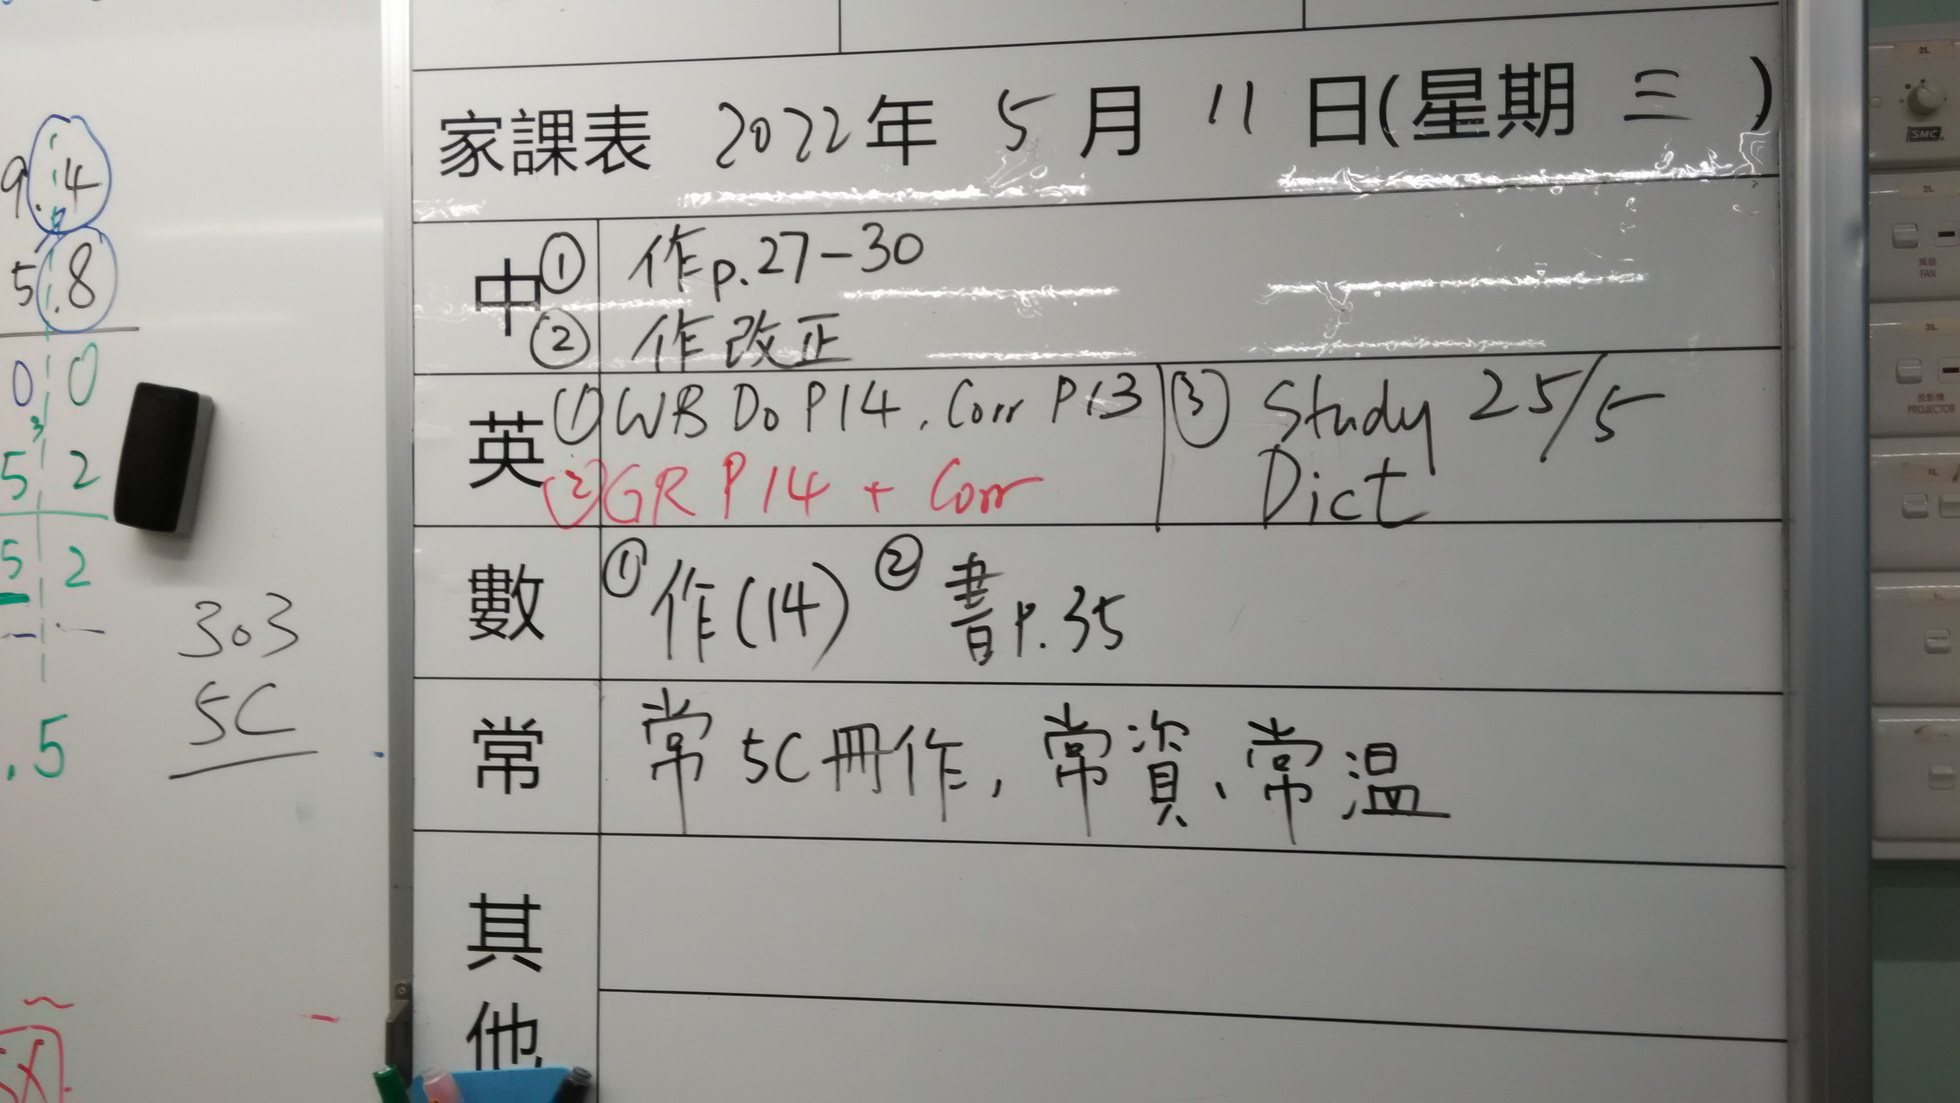 9.4
5.8
0 0
3
5 2
5 2
.5
303
5C
家課表 2022年 5月 11日(星期 三 )
中 ① 作p.27-30
② 作改正
英 ① WB Do P14, Corr P13
② GR P14 + Corr
③ Study 25/5
Dict
數 ① 作(14) ② 書p.35
常 常5C冊作, 常資、常温
其他
2L
SMC
2L
風扇
FAN
3L
投影機
PROJECTOR